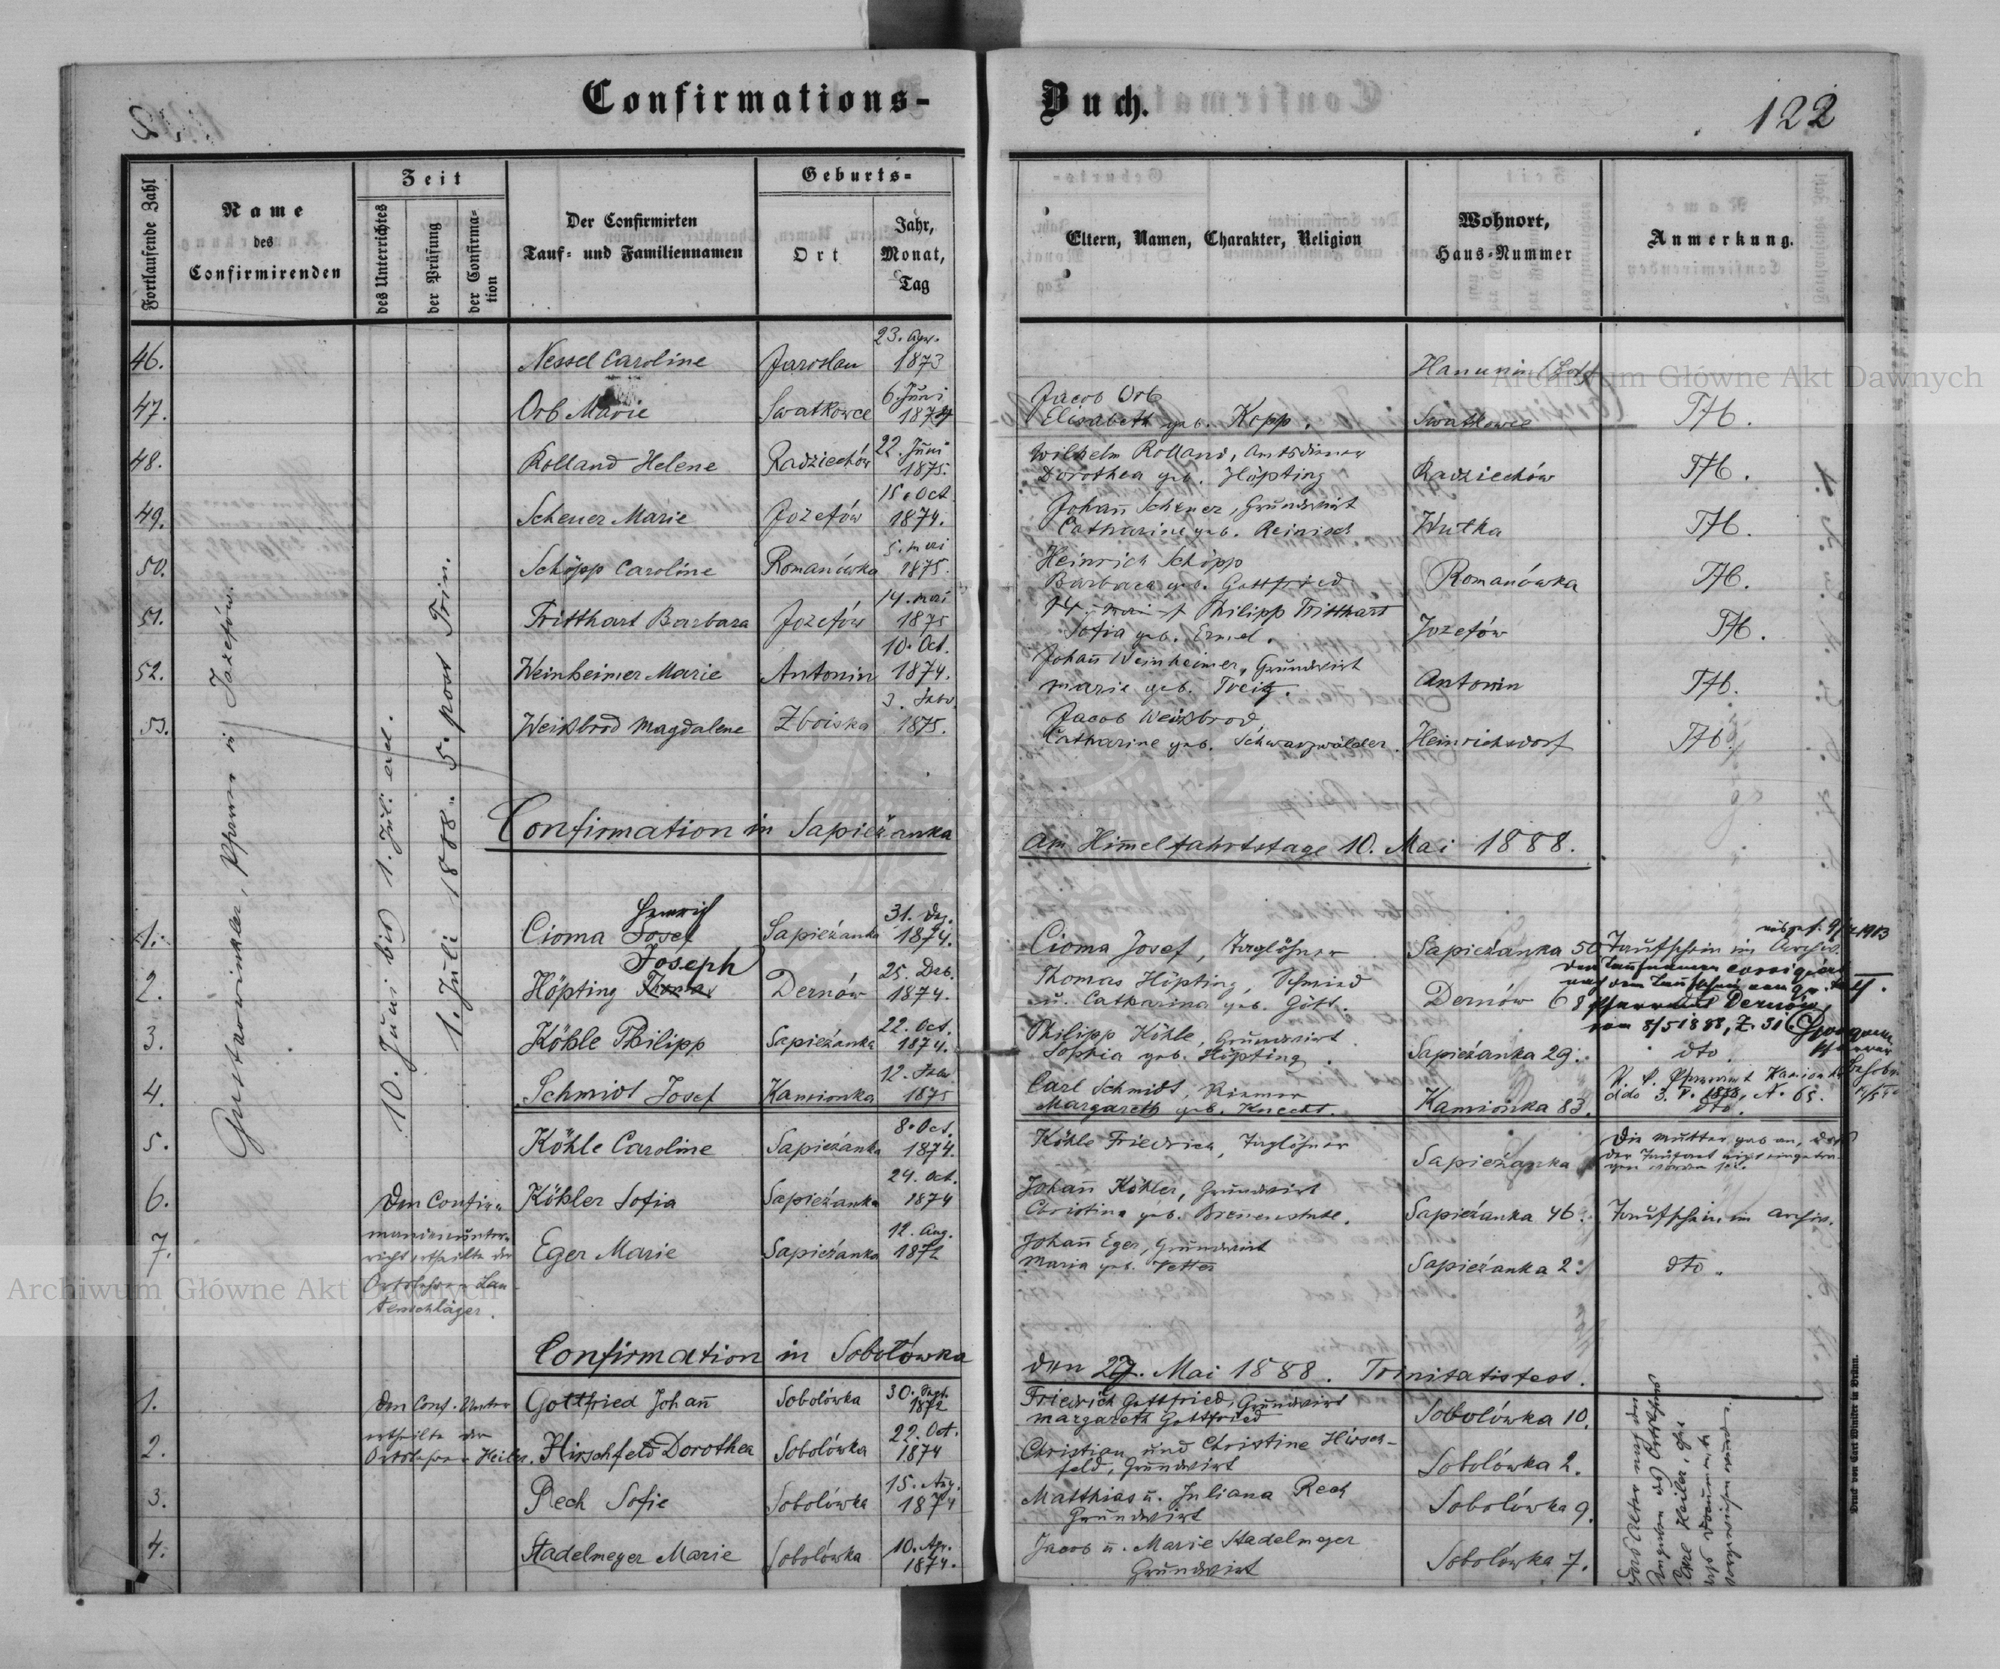 Confirmations-
Buch.
122
Fortlaufende Zahl
Name
des
Confirmirenden
Zeit
des Unterrichtes
der Prüfung
der Confirmation
Der Confirmirten
Tauf- und Familiennamen
Geburts-
Ort
Jahr,
Monat,
Tag
Eltern, Namen, Charakter, Religion
Wohnort,
Haus-Nummer
Anmerkung.
Gustav Pfarrer in Jozefów.
10. Juni bis 1. Juli
1. Juli 1888. 5. post Trin.
46. Nessel Caroline Jaroslau 23. Apr. 1873
47. Orb Marie Swatkowce 6. Juni 1874
Jacob Orb
Elisabeth geb. Kopp. Swatkowce
48. Rolland Helene Radziechów 22. Juni 1875.
Wilhelm Rolland, Amtsdiener
Dorothea geb. Höpting Radziechów
49. Scheuer Marie Jozefów 15. Oct. 1874.
Johann Scheuer, Grundwirt
Catharine geb. Reinisch
50. Schöpp Caroline Romanówka 5. Mai 1875.
Heinrich Schöpp
Barbara geb. Gottfried Romanówka
51. Tritthart Barbara Jozefów 14. Mai 1875
Philipp Tritthart
Sofia geb. Jozefów
52. Weinheimer Marie Antonin 10. Oct. 1874.
Johann Weinheimer, Grundwirt
Marie geb. Treitz. Antonin
53. Weißbrod Magdalene Zboiska 3. 1875.
Jacob Weißbrod,
Catharine geb. Schwarzwälder. Heinrichsdorf
Confirmation in Sapieżanka
am Himmelfahrtstage 10. Mai 1888.
1. Cioma Josef Heinrich Sapieżanka 31. Dez. 1874.
Cioma Josef, Taglöhner Sapieżanka 50 Taufschein im Archiv.
2. Höpting Thomas Joseph Dernów 25. Dez. 1874.
Thomas Höpting, Schmied
u. Catharina geb. Gött. Dernów 68
den Taufnamen corrigirt
nach dem Taufschein
Pfarramtes Dernów,
vom 8/5 1888, Z. 31
Pfarrer
3. Köhle Philipp Sapieżanka 22. Oct. 1874.
Philipp Köhle, Grundwirt
Sophia geb. Höpting. Sapieżanka 29. dto.
4. Schmidt Josef Kamionka 12. 1875
Carl Schmidt, Riemer
Margareth geb. Knecht. Kamionka 83.
ddo 3. V. 1888, N. 65.
dto.
5. Köhle Caroline Sapieżanka 8. Oct. 1874.
Köhle Friedrich, Taglöhner Sapieżanka
Die Mutter gab an, daß
der Taufact nicht eingetragen
worden sei.
6. Köhler Sofia Sapieżanka 24. Oct. 1874
Johann Köhler, Grundwirt
Christina geb. Sapieżanka 46. Taufschein im Archiv.
7. Eger Marie Sapieżanka 12. Aug. 1872
Johann Eger, Grundwirt
Maria geb. Sapieżanka 2. dto.
Den Confirmandenunterricht
ertheilte der
Ortslehrer Lautenschläger.
Confirmation in Sobolówka
den 27. Mai 1888. Trinitatisfest.
1. Gottfried Johann Sobolówka 30. Sept. 1872
Friedrich Gottfried, Grundwirt
Margareth Gottfried Sobolówka 10.
Den Conf. Unter.
ertheilte der
Ortslehrer Heiler.
2. Hirschfeld Dorothea Sobolówka 22. Oct. 1874
Christian und Christine Hirschfeld,
Grundwirt Sobolówka 2.
3. Rech Sofie Sobolówka 15. Aug. 1874
Matthias u. Juliana Rech
Grundwirt Sobolówka 9.
4. Stadelmeyer Marie Sobolówka 10. Apr. 1874.
Jacob u. Marie Stadelmeyer
Grundwirt Sobolówka 7.
Das Alter nach den
Angaben des Ortslehrers
Heiler,
Druck von Carl Winiker in Brünn.
Archiwum Główne Akt Dawnych
Archiwum Główne Akt Dawnych